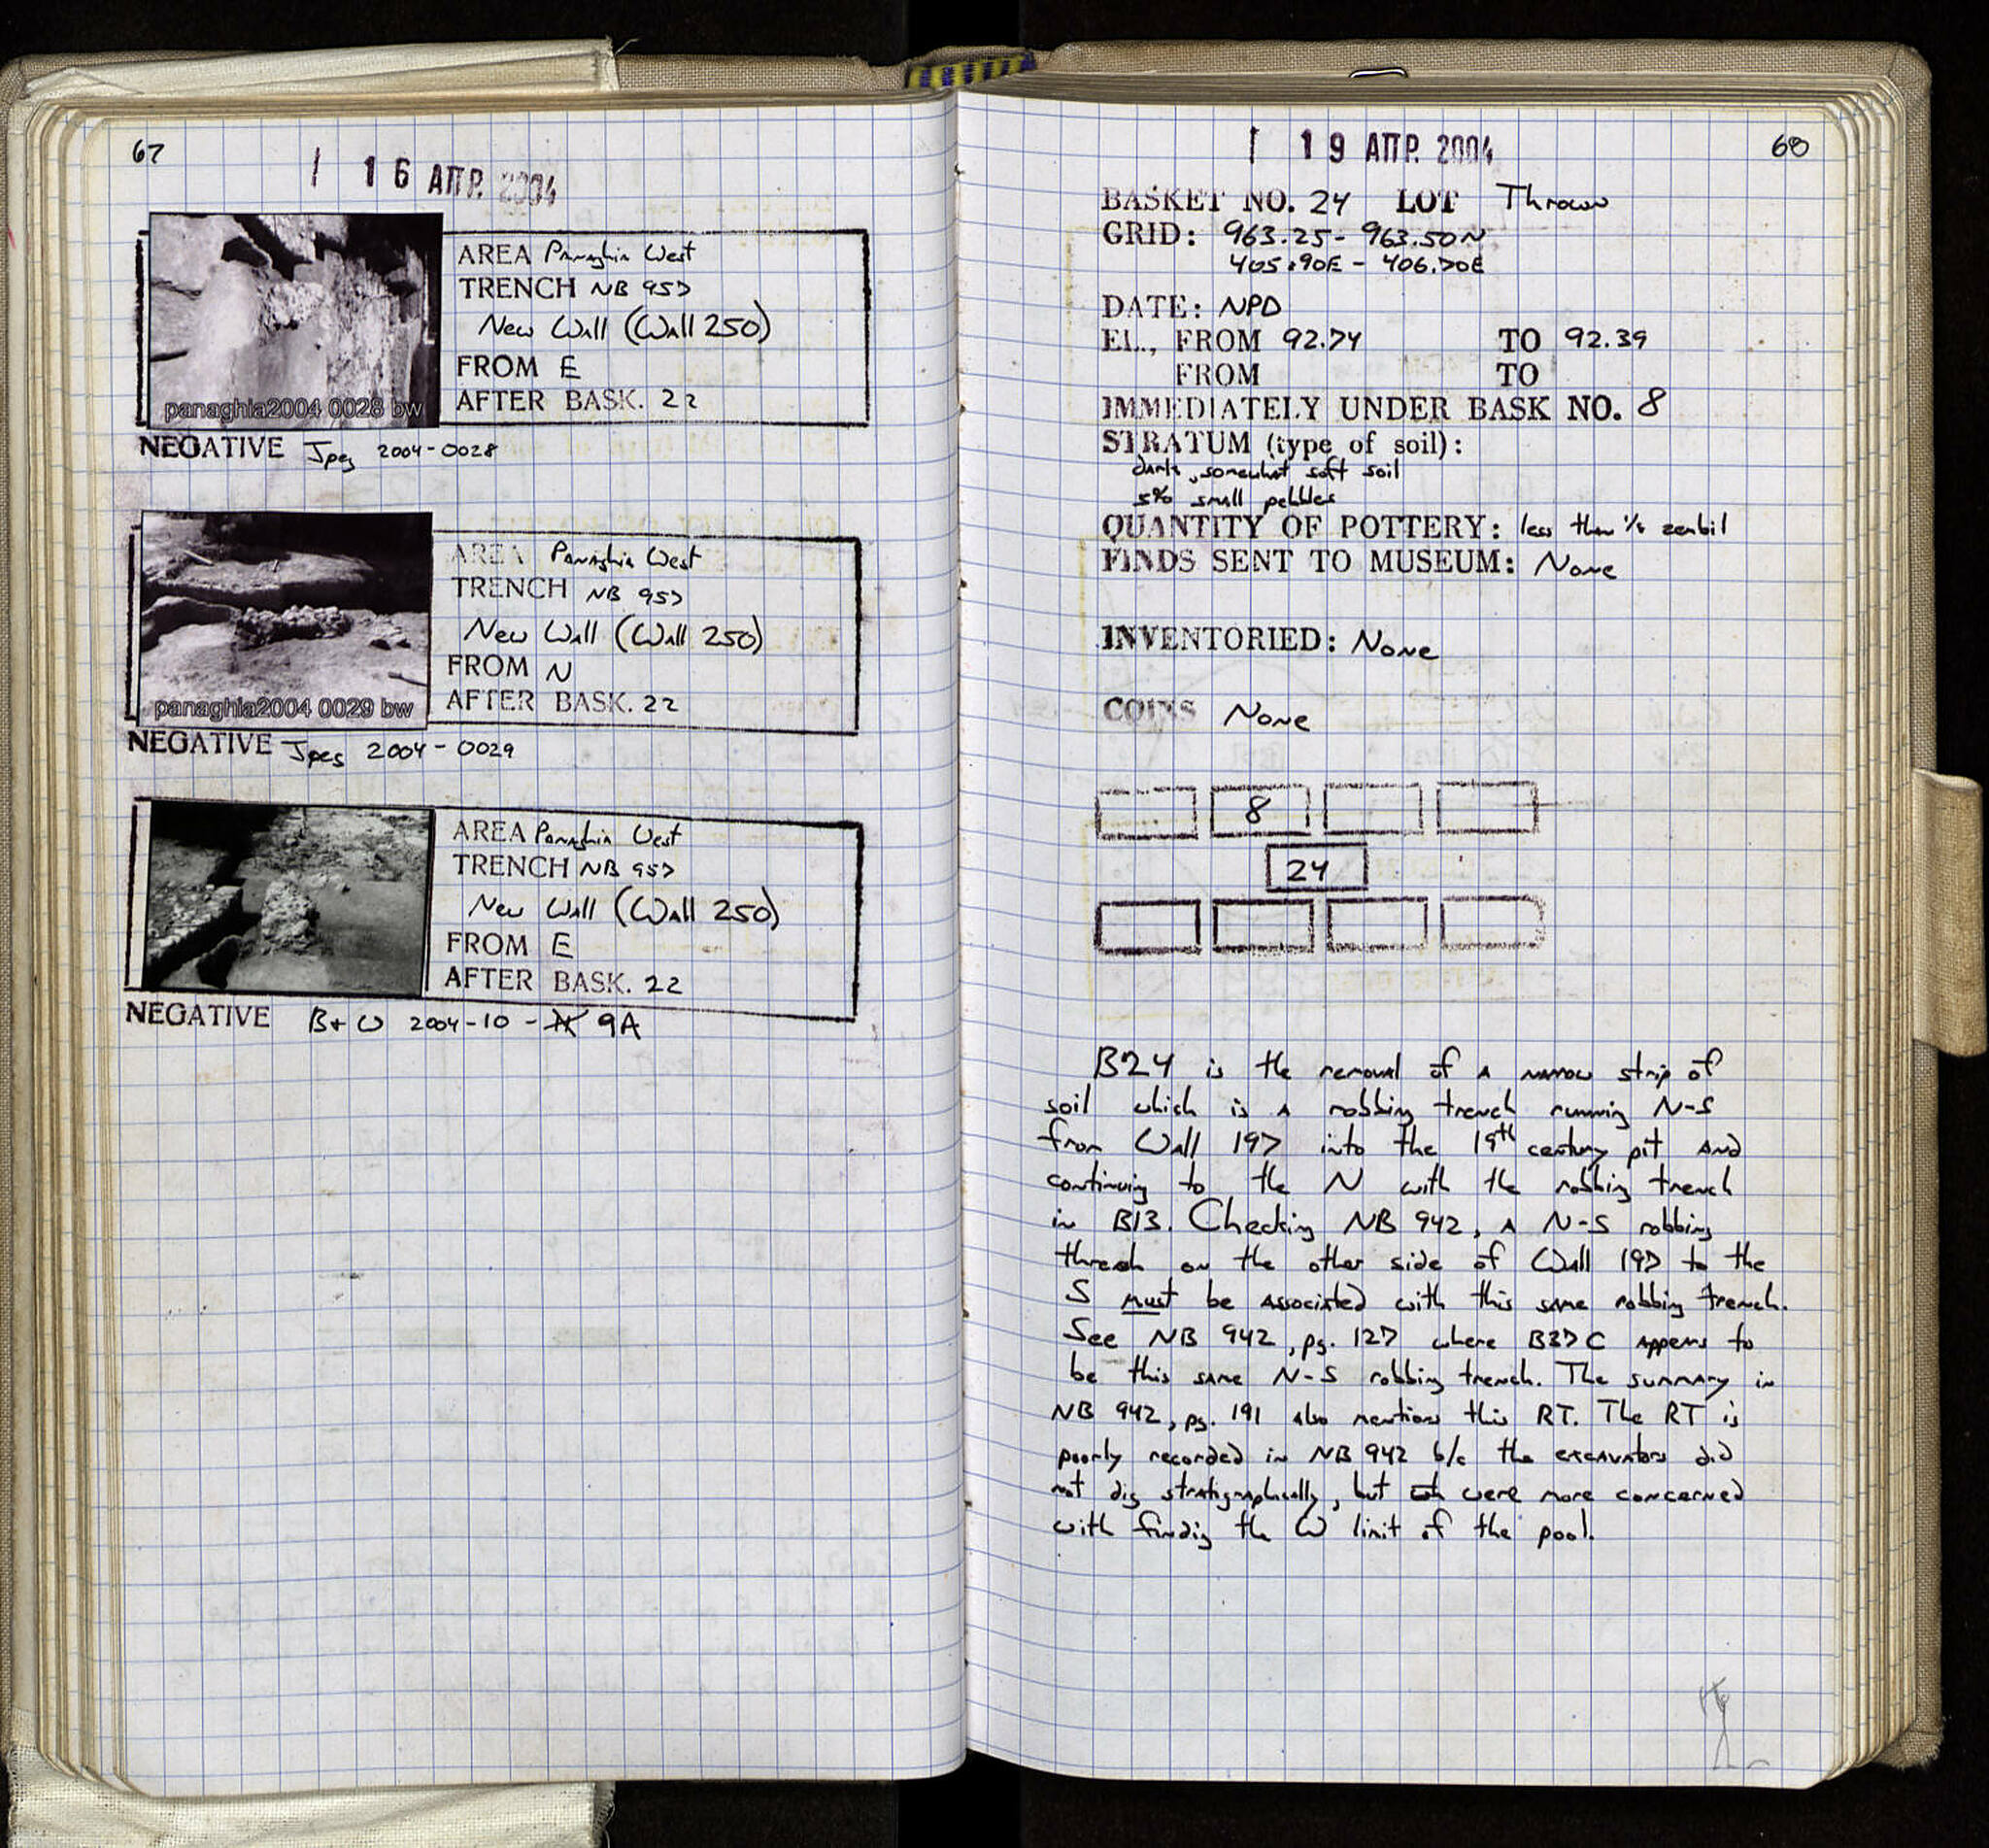 67
1 16 ΑΠΡ. 2004
AREA Panaghia West
TRENCH NB 957
New Wall (Wall 250)
FROM E
AFTER BASK. 22
panaghia2004 0028 bw
NEGATIVE Jpeg 2004-0028
AREA Panaghia West
TRENCH NB 957
New Wall (Wall 250)
FROM N
AFTER BASK. 22
panaghia2004 0029 bw
NEGATIVE Jpeg 2004-0029
AREA Panaghia West
TRENCH NB 957
New Wall (Wall 250)
FROM E
AFTER BASK. 22
NEGATIVE B+W 2004-10- 9A
68
1 19 ΑΠΡ. 2004
BASKET NO. 24 LOT Thrown
GRID: 963.25- 963.50N
405.90E - 406.70E
DATE: NPD
EL., FROM 92.74 TO 92.39
FROM TO
IMMEDIATELY UNDER BASK NO. 8
STRATUM (type of soil):
dark, somewhat soft soil
5% small pebbles
QUANTITY OF POTTERY: less than 1/8 zenbil
FINDS SENT TO MUSEUM: None
INVENTORIED: None
COINS None
8
24
B24 is the removal of a narrow strip of
soil which is a robbing trench running N-S
from Wall 197 into the 19th century pit and
continuing to the N with the robbing trench
in B13. Checking NB 942, a N-S robbing
threnh on the other side of Wall 197 to the
S must be associated with this same robbing trench.
See NB 942, pg. 127 where B37C appears to
be this same N-S robbing trench. The summary in
NB 942, pg. 191 also mentions this RT. The RT is
poorly recorded in NB 942 b/c the excavators did
not dig stratigraphically, but were more concerned
with findig the W limit of the pool.